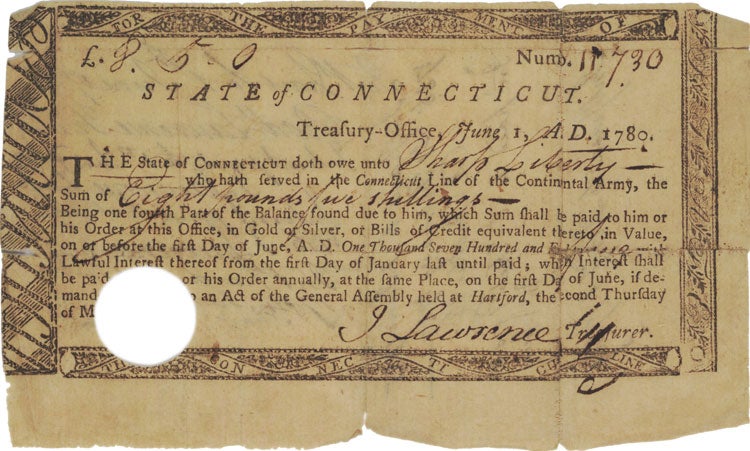 FOR THE PAY MENT OF
£. 8. 5. 0 Numb. 11730
STATE of CONNECTICUT.
Treasury-Office, June 1, A. D. 1780.
THE State of CONNECTICUT doth owe unto Sharp Liberty
who hath served in the Connecticut Line of the Continental Army, the
Sum of Eight pounds five shillings
Being one fourth Part of the Balance found due to him, which Sum shall be paid to him or
his Order at this Office, in Gold or Silver, or Bills of Credit equivalent thereto in Value,
on or before the first Day of June, A. D. One Thousand Seven Hundred and
Lawful Interest thereof from the first Day of January last until paid; when Interest shall
be paid or his Order annually, at the same Place, on the first Day of June, if de-
mand an Act of the General Assembly held at Hartford, the second Thursday
of M
J Lawrence Treasurer.
THE CON NEC TI CUT LINE